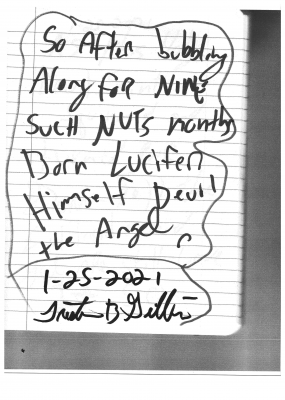 So After bubbling
Along for Nine
Such Nuts months
Born Lucifer
Himself Devil
the Angel
1-25-2021